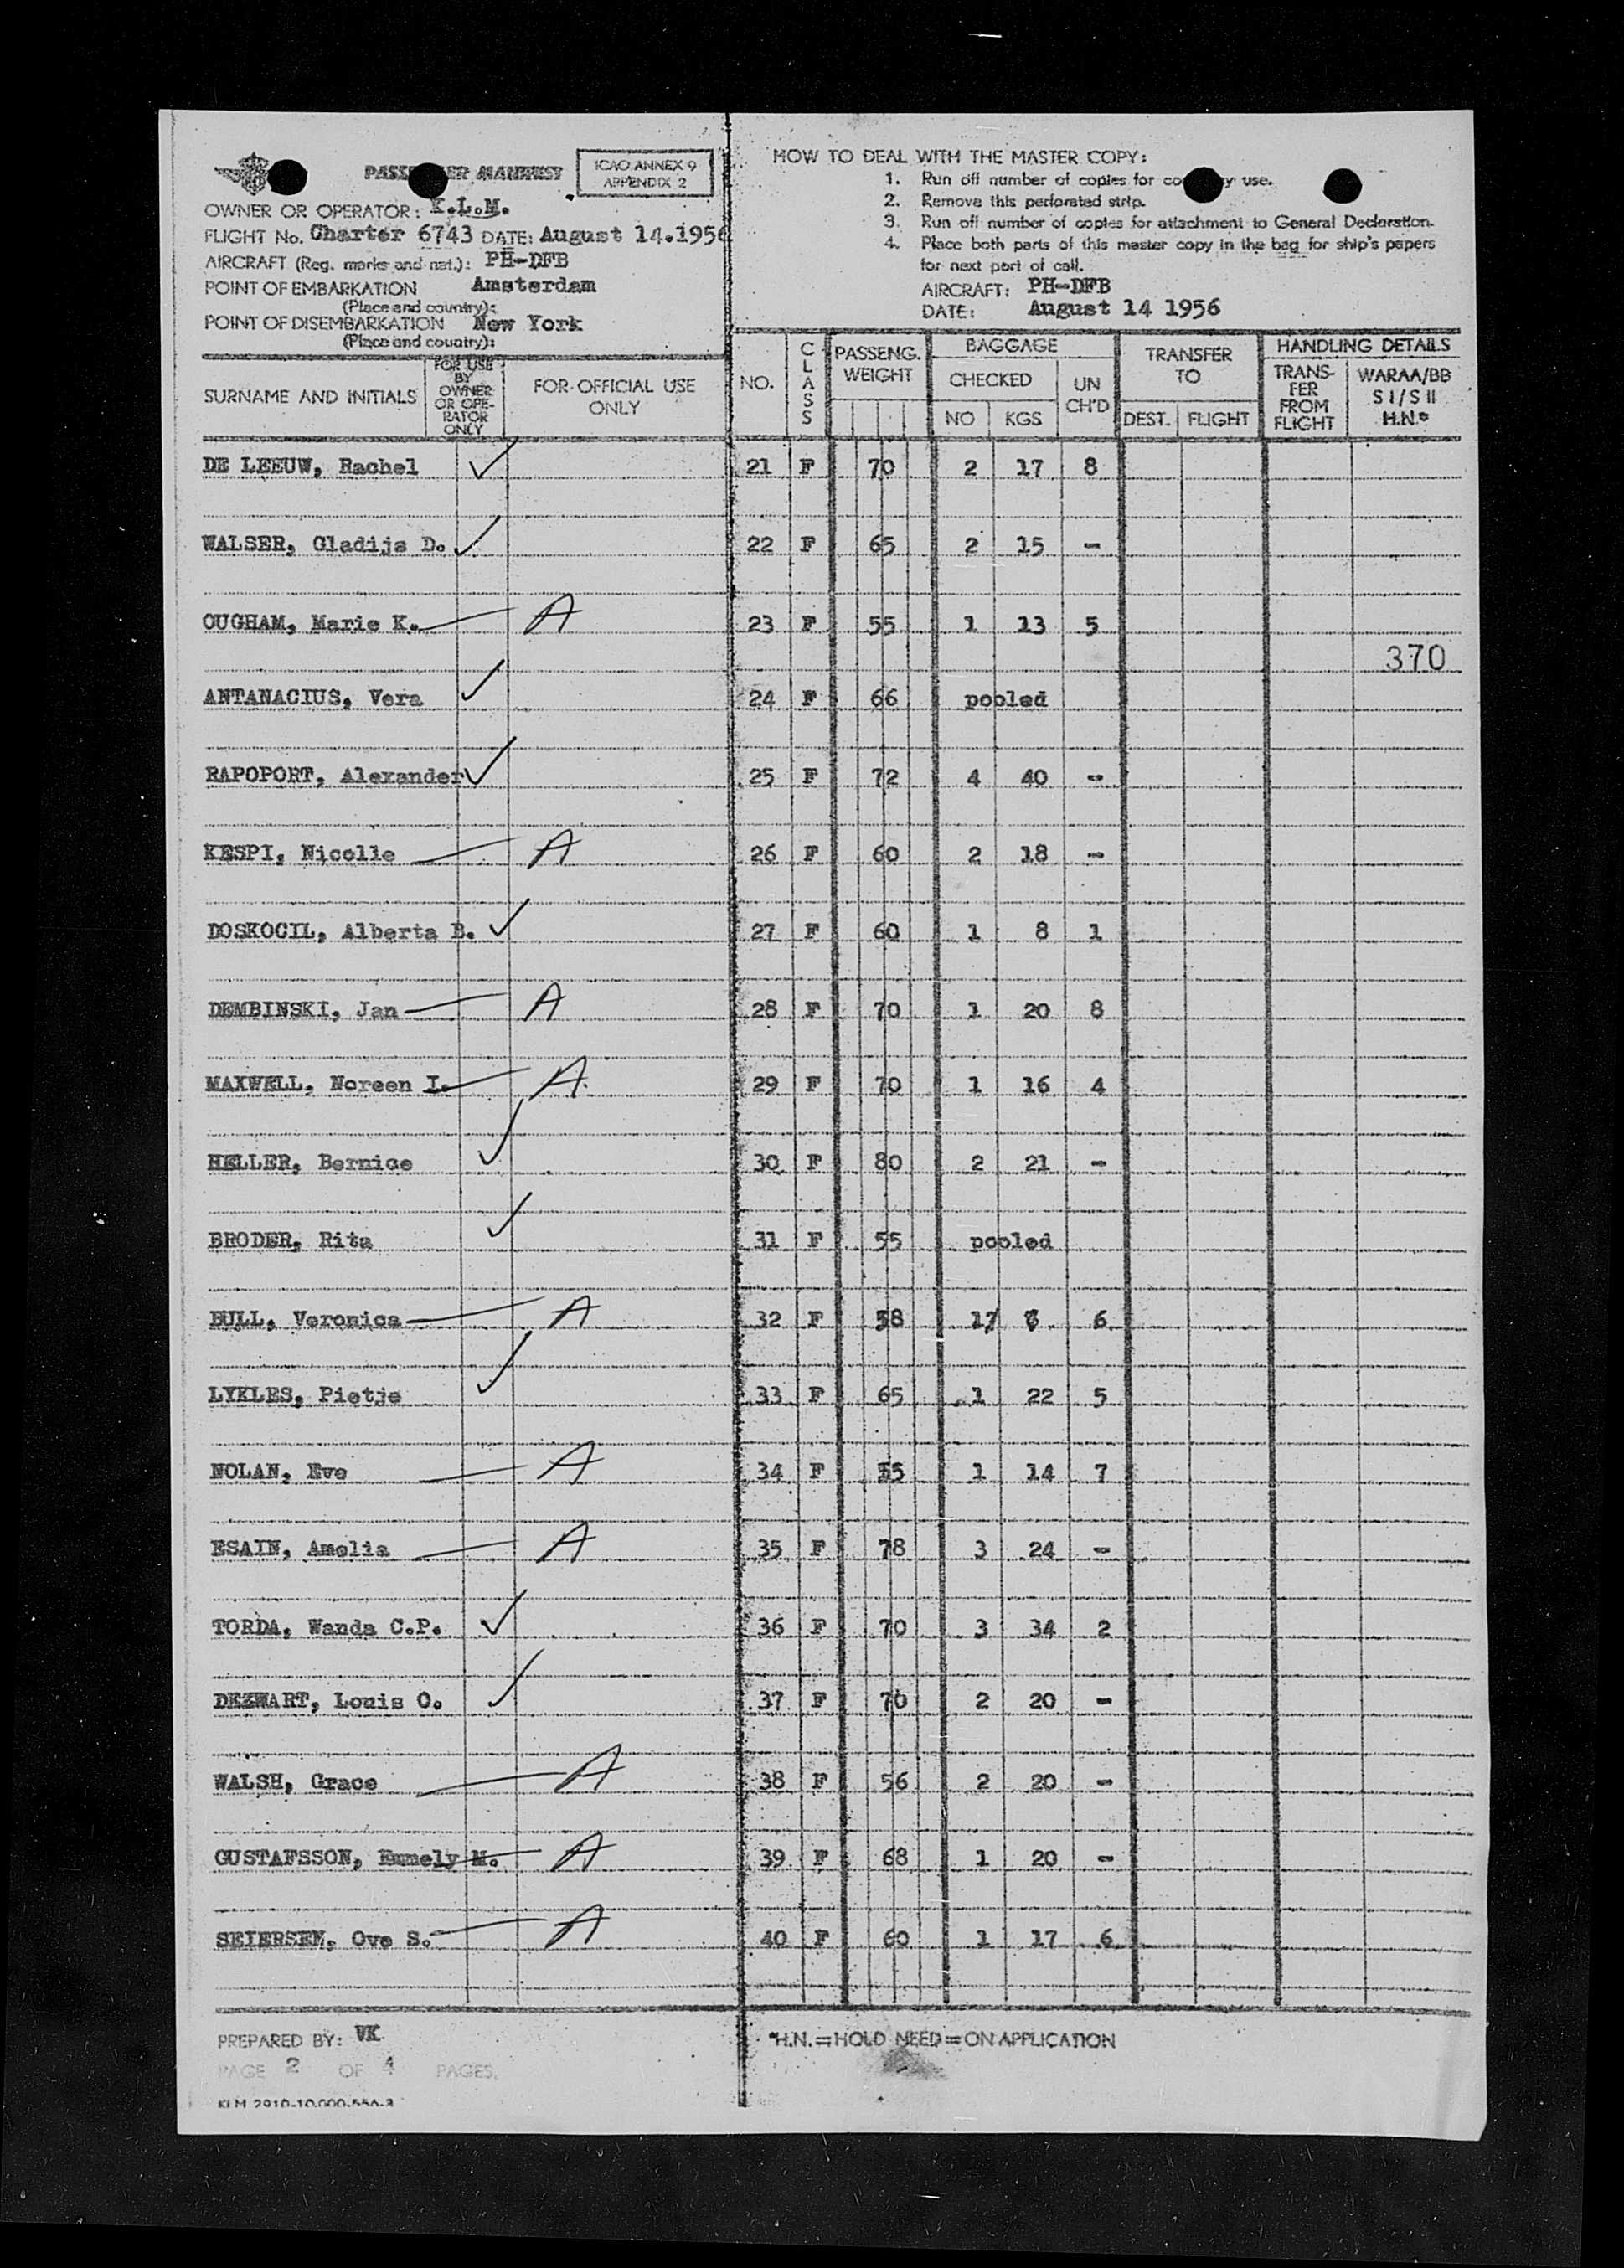 PASSENGER MANIFEST
ICAO ANNEX 9
APPENDIX 2
OWNER OR OPERATOR: K.L.M.
FLIGHT No. Charter 6743 DATE: August 14.1956
AIRCRAFT (Reg. marks and nat.): PH-DFB
POINT OF EMBARKATION Amsterdam
(Place and country):
POINT OF DISEMBARKATION New York
(Place and country):
HOW TO DEAL WITH THE MASTER COPY:
1. Run off number of copies for company use.
2. Remove this perforated strip.
3. Run off number of copies for attachment to General Declaration.
4. Place both parts of this master copy in the bag for ship's papers
for next port of call.
AIRCRAFT: PH-DFB
DATE: August 14 1956
SURNAME AND INITIALS
FOR USE
BY
OWNER
OR OPE-
RATOR
ONLY
FOR OFFICIAL USE
ONLY
NO.
CLASS
PASSENG.
WEIGHT
BAGGAGE
CHECKED
NO KGS
UN
CH'D
TRANSFER
TO
DEST. FLIGHT
HANDLING DETAILS
TRANS-
FER
FROM
FLIGHT
WARAA/BB
S I / S II
H.N.*
DE LEEUW, Rachel ✓ 21 F 70 2 17 8
WALSER, Gladijs D. ✓ 22 F 65 2 15 -
OUGHAM, Marie K. A 23 F 55 1 13 5
370
ANTANACIUS, Vera ✓ 24 F 66 pooled
RAPOPORT, Alexander ✓ 25 F 72 4 40 -
KESPI, Nicolle A 26 F 60 2 18 -
DOSKOCIL, Alberta B. ✓ 27 F 60 1 8 1
DEMBINSKI, Jan A 28 F 70 1 20 8
MAXWELL, Noreen I. A 29 F 70 1 16 4
HELLER, Bernice ✓ 30 F 80 2 21 -
BRODER, Rita ✓ 31 F 55 pooled
BULL, Veronica A 32 F 58 6
LYKLES, Pietje ✓ 33 F 65 1 22 5
NOLAN, Eve A 34 F 55 1 14 7
ESAIN, Amelia A 35 F 78 3 24 -
TORDA, Wanda C.P. ✓ 36 F 70 3 34 2
DEZWART, Louis O. ✓ 37 F 70 2 20 -
WALSH, Grace A 38 F 56 2 20 -
GUSTAFSSON, Emmely M. A 39 F 68 1 20 -
SEIERSEN, Ove S. A 40 F 60 1 17 6
PREPARED BY: VK
*H.N. = HOLD NEED = ON APPLICATION
PAGE 2 OF 4 PAGES.
KLM 2910-10.000-556-3